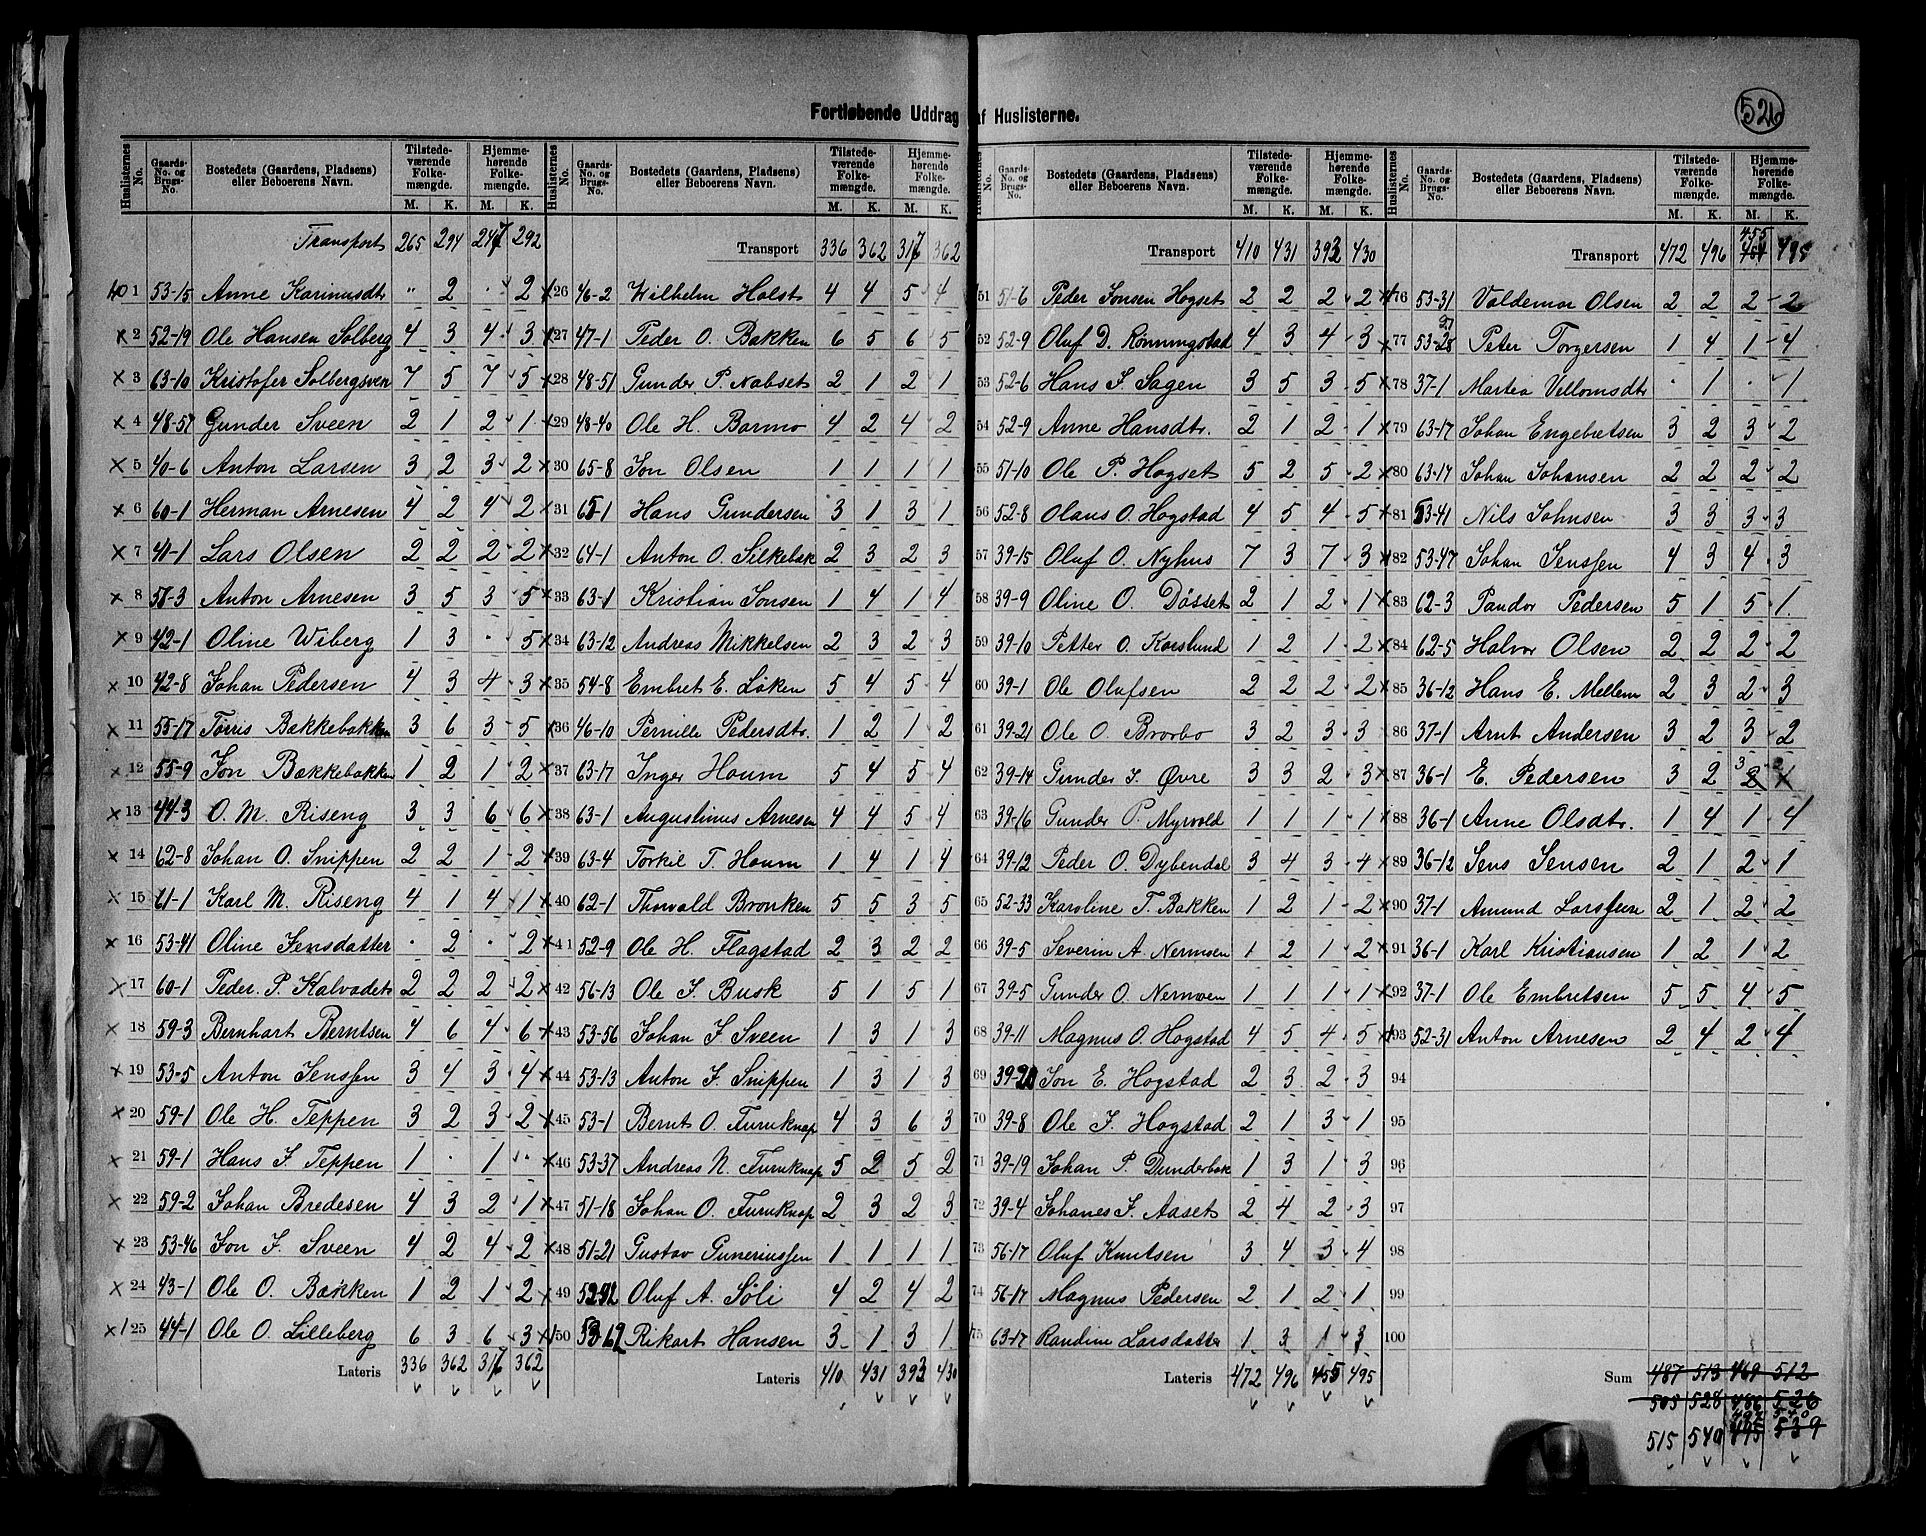 Fortløbende Uddrag af Huslisterne.
526
Huslisternes No. Gaards-No. og Brugs-No. Bostedets (Gaardens, Pladsens) eller Beboerens Navn. Tilstedeværende Folkemængde. M. K. Hjemmehørende Folkemængde. M. K.
Transport 265 294 247 292
1 53-15 Anne Karinusdtr " 2 · 2
2 52-19 Ole Hansen Solberg 4 3 4 3
3 63-10 Kristofer Solbergsven 7 5 7 5
4 48-57 Gunder Sveen 2 1 2 1
5 40-6 Anton Larsen 3 2 3 2
6 60-1 Herman Arnesen 4 2 4 2
7 41-1 Lars Olsen 2 2 2 2
8 58-3 Anton Arnesen 3 5 3 5
9 42-1 Oline Wiberg 1 3 · 5
10 42-8 Johan Pedersen 4 3 4 3
11 55-17 Torris Bakkebakken 3 6 3 5
12 55-9 Jon Bakkebakken 1 2 1 2
13 44-3 O. M. Riseng 3 3 6 6
14 62-8 Johan O. Snippen 2 2 1 2
15 61-1 Karl M. Riseng 4 1 4 1
16 53-41 Oline Jensdatter · 2 · 2
17 60-1 Peder. P. Kalvadets 2 2 2 2
18 59-3 Bernhart Berntsen 4 6 4 6
19 53-5 Anton Jenssen 3 4 3 4
20 59-1 Ole H. Teppen 3 2 3 2
21 59-1 Hans J. Teppen 1 · 1 ·
22 59-2 Johan Bredesen 4 3 2 1
23 53-46 Jon J. Sveen 4 2 4 2
24 43-1 Ole O. Bakken 1 2 1 2
25 44-1 Ole O. Lilleberg 6 3 6 3
Lateris 336 362 317 362
Huslisternes No. Gaards-No. og Brugs-No. Bostedets (Gaardens, Pladsens) eller Beboerens Navn. Tilstedeværende Folkemængde. M. K. Hjemmehørende Folkemængde. M. K.
Transport 336 362 317 362
26 46-2 Wilhelm Holst 4 4 5 4
27 47-1 Peder O. Bakken 6 5 6 5
28 48-51 Gunder P. Nabset 2 1 2 1
29 48-40 Ole H. Barmo 4 2 4 2
30 65-8 Jon Olsen 1 1 1 1
31 65-1 Hans Gundersen 3 1 3 1
32 64-1 Anton O. Silkebak 2 3 2 3
33 63-1 Kristian Jonsen 1 4 1 4
34 63-12 Andreas Mikkelsen 2 3 2 3
35 54-8 Embret E. Løken 5 4 5 4
36 46-10 Pernille Pedersdtr. 1 2 1 2
37 63-17 Inger Houm 5 4 5 4
38 63-1 Augustinus Arnesen 4 4 5 4
39 63-4 Torkil T. Houm 1 4 1 4
40 62-1 Thorvald Bronken 5 5 3 5
41 52-9 Ole H. Flagstad 2 3 2 2
42 56-13 Ole J. Busk 5 1 5 1
43 53-56 Johan J. Sveen 1 3 1 3
44 53-13 Anton J. Snippen 1 3 1 3
45 53-1 Bernt O. Furuknap 4 3 6 3
46 53-37 Andreas N. Furuknap 5 2 5 2
47 51-18 Johan O. Furuknap 2 3 2 3
48 51-21 Gustav Guneriussen 1 1 1 1
49 Oluf A. Søli 4 2 4 2
50 Rikart Hansen 3 1 3 1
Lateris 410 431 393 430
Huslisternes No. Gaards-No. og Brugs-No. Bostedets (Gaardens, Pladsens) eller Beboerens Navn. Tilstedeværende Folkemængde. M. K. Hjemmehørende Folkemængde. M. K.
Transport 410 431 393 430
51 51-6 Peder Jonsen Hogset 2 2 2 2
52 52-9 Oluf D. Rønningstad 4 3 4 3
53 52-6 Hans J. Sagen 3 5 3 5
54 52-9 Anne Hansdtr. 2 1 2 1
55 51-10 Ole P. Hogset 5 2 5 2
56 52-8 Olaus O. Hogstad 4 5 4 5
57 39-15 Oluf O. Nyhus 7 3 7 3
58 39-9 Oline O. Døsset 2 1 2 1
59 39-10 Petter O. Korslund 1 2 1 2
60 39-1 Ole Olufsen 2 2 2 2
61 39-21 Ole O. Brorbo 3 2 3 3
62 39-14 Gunder J. Øvre 3 3 2 3
63 39-16 Gunder P. Myrvold 1 1 1 1
64 39-12 Peder O. Dybendal 3 4 3 4
65 52-33 Karoline T. Bakken 1 2 1 2
66 39-5 Severin A. Nermoen 1 2 1 2
67 39-5 Gunder O. Nermoen 1 1 1 1
68 39-11 Magnus O. Hogstad 4 5 4 5
69 39-20 Jon E. Hogstad 2 3 2 3
70 39-8 Ole J. Hogstad 2 1 3 1
71 39-19 Johan P. Dunderbak 1 3 1 3
72 39-4 Johanes J. Aaset 2 4 2 3
73 56-17 Oluf Knutsen 3 4 3 4
74 56-17 Magnus Pedersen 2 1 2 1
75 63-17 Randine Larsdatter 1 3 1 3
Lateris 472 496 455 495
Huslisternes No. Gaards-No. og Brugs-No. Bostedets (Gaardens, Pladsens) eller Beboerens Navn. Tilstedeværende Folkemængde. M. K. Hjemmehørende Folkemængde. M. K.
455
Transport 472 496 454 495
76 53-31 Valdemar Olsen 2 2 2 2
77 53-28 27 Peter Torgersen 1 4 1 4
78 37-1 Martea Villomsdtr · 1 · 1
79 63-17 Johan Engebretsen 3 2 3 2
80 63-17 Johan Johansen 2 2 2 2
81 53-41 Nils Johnsen 3 3 3 3
82 53-47 Johan Jenssen 4 3 4 3
83 62-3 Pandor Pedersen 5 1 5 1
84 62-5 Halvor Olsen 2 2 2 2
85 36-12 Hans E. Mellem 2 3 2 3
86 37-1 Arnt Andersen 3 2 3 2
87 36-1 E. Pedersen 3 2 3 2 2 1
88 36-1 Anne Olsdtr. 1 4 1 4
89 36-12 Jens Jensen 2 1 2 1
90 37-1 Amund Larssen 2 1 2 2
91 36-1 Karl Kristiansen 1 2 1 2
92 37-1 Ole Embretsen 5 5 4 5
93 52-31 Anton Arnesen 2 4 2 4
94
95
96
97
98
99
100
Sum 487 513 469 512
505 528 486 526
497 540
515 540 495 539